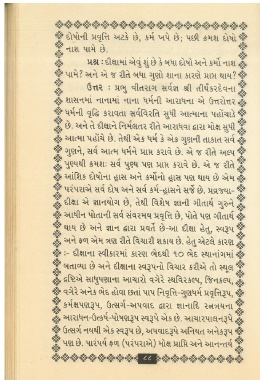 દોષોની પ્રવૃત્તિ અટકે છે, કર્મ ખપે છે; પછી ક્રમશ દોષો
નાશ પામે છે.
પ્રશ્ન : દીક્ષામાં એવું શું છે કે બધા દોષો અને કર્મો નાશ
પામે? અને એ જ રીતે બધા ગુણો શાના કારણે પ્રાપ્ત થાય?
ઉત્તર : પ્રભુ વીતરાગ સર્વજ્ઞ શ્રી તીર્થંકરદેવના
શાસનમાં નાનામાં નાના ધર્મની આરાધના એ ઉત્તરોત્તર
ધર્મની વૃદ્ધિ કરાવતા સર્વવિરતિ સુધી આત્માને પહોંચાડે
છે. અને તે દીક્ષાને નિર્મલતર રીતે આરાધવા દ્વારા મોક્ષ સુધી
આત્મા પહોંચે છે. તેથી એક ધર્મ કે એક ગુણની તાકાત સર્વ
ગુણને, સર્વ આત્મ ધર્મને પ્રાપ્ત કરાવે છે. એ જ રીતે અલ્પ
પુણ્યથી ક્રમશઃ સર્વ પુણ્ય પણ પ્રાપ્ત કરાવે છે. એ જ રીતે
આંશિક દોષોના હ્રાસ અને કર્મોનો હ્રાસ પણ થાય છે એમ
પરંપરાએ સર્વ દોષ અને સર્વ કર્મ-હ્રાસને સર્જે છે. પ્રવ્રજ્યા-
દીક્ષા એ જ્ઞાનયોગ છે, તેથી વિશેષ જ્ઞાની ગીતાર્થ ગુરુને
આધીન પોતાની સર્વ સંવરમય પ્રવૃત્તિ છે, પોતે પણ ગીતાર્થ
થાય છે અને જ્ઞાન દ્વારા પ્રવર્તે છે-આ દીક્ષા હેતુ, સ્વરૂપ
અને ફળ એમ ત્રણ રીતે વિચારી શકાય છે. હેતુ એટલે કારણ
:- દીક્ષાના સ્વીકારમાં કારણ બેંદથી ૧૦ ભેદ સ્થાનાંગમાં
બતાવ્યા છે અને દીક્ષાના સ્વરૂપનો વિચાર કરીએ તો સ્થૂલ
દ્રષ્ટિએ સાધુપણાના આચારો વગેરે સ્થવિરકલ્પ, જિનકલ્પ,
વગેરે અનેક ભેદ હોવા છતાં પાપ નિવૃત્તિ-ગુણધર્મ પ્રવૃત્તિરૂપ,
કર્મક્ષપણરૂપ, ઉત્સર્ગ-અપવાદ દ્વારા જ્ઞાનાદિ રત્નત્રયના
આરાધન-ઉત્કર્ષ-પોષણરૂપ સ્વરૂપ એક છે. આચારપાલનરૂપે
ઉત્સર્ગ નયથી એક સ્વરૂપ છે, અપવાદરૂપે અનિયત અનેકરૂપ
પણ છે. પારંપર્ય ફળ (પરંપરાએ) મોક્ષ પ્રાપ્તિ અને આનન્તર્ય